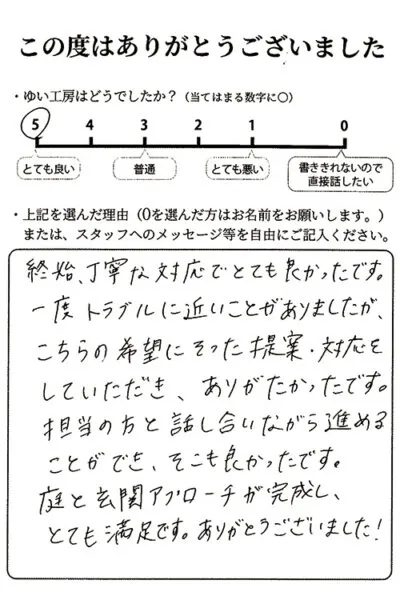 この度はありがとうございました
・ゆい工房はどうでしたか？（当てはまる数字に〇）
5 4 3 2 1 0
とても良い 普通 とても悪い 書ききれないので
直接話したい
・上記を選んだ理由（0を選んだ方はお名前をお願いします。）
または、スタッフへのメッセージ等を自由にご記入ください。
終始、丁寧な対応でとても良かったです。
一度トラブルに近いことがありましたが、
こちらの希望にそった提案・対応を
していただき、ありがたかったです。
担当の方と話し合いながら進める
ことができ、そこも良かったです。
庭と玄関アプローチが完成し、
とても満足です。ありがとうございました！